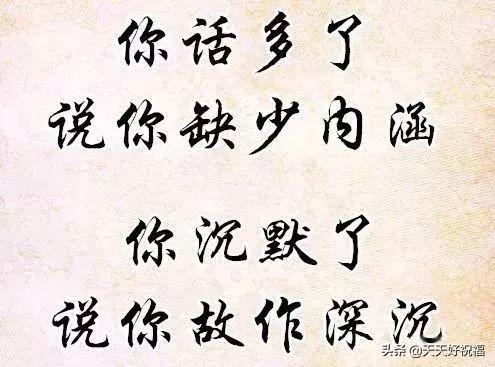 你话多了
说你缺少内涵
你沉默了
说你故作深沉
头条 @天天好祝福